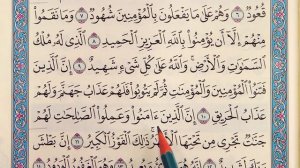 قُعُودٌ ٦ وَهُمْ عَلَىٰ مَا يَفْعَلُونَ بِٱلْمُؤْمِنِينَ شُهُودٌ ٧ وَمَا نَقَمُوا۟
مِنْهُمْ إِلَّآ أَن يُؤْمِنُوا۟ بِٱللَّهِ ٱلْعَزِيزِ ٱلْحَمِيدِ ٨ ٱلَّذِى لَهُۥ مُلْكُ
ٱلسَّمَٰوَٰتِ وَٱلْأَرْضِ وَٱللَّهُ عَلَىٰ كُلِّ شَىْءٍ شَهِيدٌ ٩ إِنَّ ٱلَّذِينَ
فَتَنُوا۟ ٱلْمُؤْمِنِينَ وَٱلْمُؤْمِنَٰتِ ثُمَّ لَمْ يَتُوبُوا۟ فَلَهُمْ عَذَابُ جَهَنَّمَ وَلَهُمْ
عَذَابُ ٱلْحَرِيقِ ١٠ إِنَّ ٱلَّذِينَ ءَامَنُوا۟ وَعَمِلُوا۟ ٱلصَّٰلِحَٰتِ لَهُمْ
جَنَّٰتٌ تَجْرِى مِن تَحْتِهَا ذَٰلِكَ ٱلْفَوْزُ ٱلْكَبِيرُ ١١ إِنَّ بَطْشَ